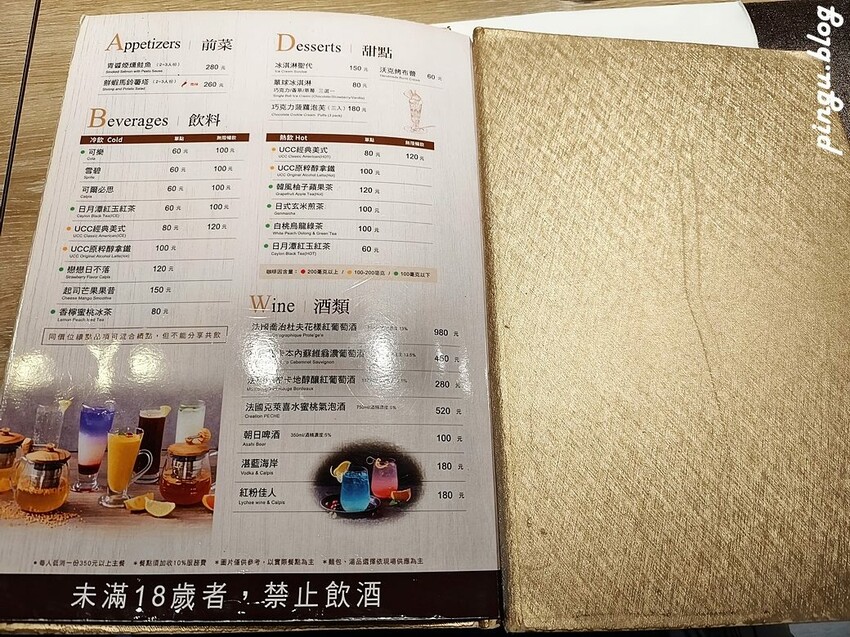 Appetizers | 前菜
青醬煙燻鮭魚 (2~3人份) 280 元
Smoked Salmon with Pesto Sauce
鮮蝦馬鈴薯塔 (2~3人份) 260 元
Shrimp and Potato Salad
Beverages | 飲料
冷飲 Cold 單點 無限暢飲
可樂 60 元 100 元
Cola
雪碧 60 元 100 元
Sprite
可爾必思 60 元 100 元
Calpis
日月潭紅玉紅茶 60 元 100 元
Ceylon Black Tea(ICE)
UCC經典美式 80 元 120 元
UCC Classic American(ICE)
UCC原粹醇拿鐵 100 元
UCC Original Alcohol Latte(Ice)
戀戀日不落 120 元
Strawberry Flavor Calpis
起司芒果果昔 150 元
Cheese Mango Smoothie
香檸蜜桃冰茶 80 元
Lemon Peach Iced Tea
同價位續點品項可混合續點，但不能分享共飲
Desserts | 甜點
冰淇淋聖代 150 元
Ice Cream Sundae
沃克烤布蕾 60 元
單球冰淇淋 80 元
巧克力/香草/草莓 三選一
巧克力菠蘿泡芙 (三入) 180 元
熱飲 Hot 單點 無限暢飲
UCC經典美式 80 元 120 元
UCC Classic American(HOT)
UCC原粹醇拿鐵 100 元
UCC Original Alcohol Latte(Hot)
韓風柚子蘋果茶 120 元
Grapefruit Apple Tea(Hot)
日式玄米煎茶 100 元
Genmaicha
白桃烏龍綠茶 100 元
White Peach Oolong & Green Tea
日月潭紅玉紅茶 60 元
Ceylon Black Tea(HOT)
咖啡因含量：200毫克以上 / 100-200毫克 / 100毫克以下
Wine | 酒類
法國喬治杜夫花樣紅葡萄酒 980 元
卡本內蘇維翁濃葡萄酒 450 元
Cabernet Sauvignon
卡地醇釀紅葡萄酒 280 元
Rouge Bordeaux
法國克萊喜水蜜桃氣泡酒 750ml/酒精濃度:5% 520 元
Creation PECHE
朝日啤酒 350ml/酒精濃度:5% 100 元
Asahi Beer
湛藍海岸 180 元
Vodka & Calpis
紅粉佳人 180 元
Lychee wine & Calpis
*每人低消一份350元以上主餐 *餐點須加收10%服務費 *圖片僅供參考，以實際餐點為主 *麵包、湯品選擇依現場供應為主
未滿18歲者，禁止飲酒
pingu.blog